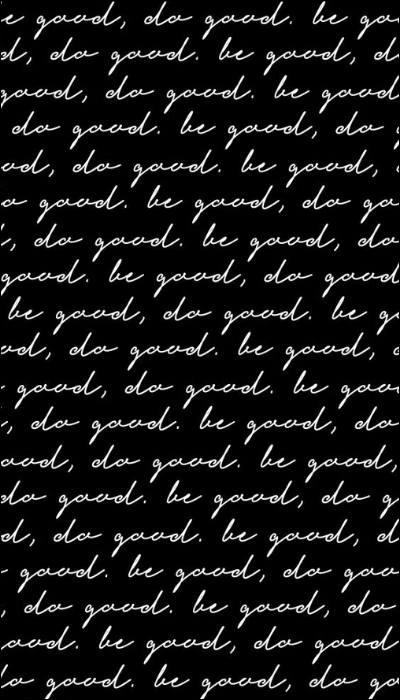 e good, do good. be go
d, do good. be good, d
good, do good. be good
do good. be good, do
od, do good. be good,
o good. be good, do go
, do good. be good, do
good. be good, do good
be good, do good. be g
od, do good. be good,
good, do good. be goo
, do good. be good, do
ood, do good. be good,
do good. be good, do g
d, do good. be good, do
good. be good, do goo
, do good. be good, do
ood. be good, do good
do good. be good, do